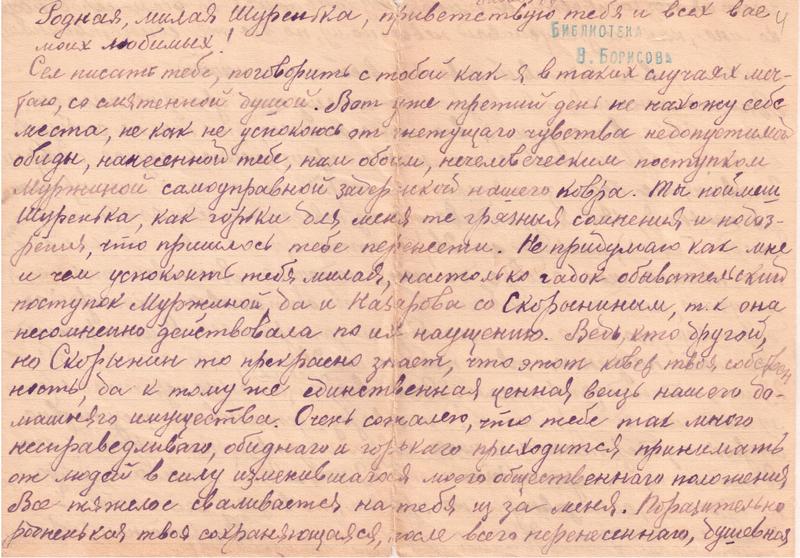 Родная, милая Шуренька, приветствую тебя и всех вас 4
моих любимых!
БИБЛИОТЕКА
В. БОРИСОВА
Сел писать тебе, поговорить с тобой как я в таких случаях меч-
таю, со смятенной душой. Вот уже третий день не нахожу себе
места, не как не успокоюсь от гнетущаго чувства недопустимой
обиды, нанесенной тебе, нам обоим, нечеловеческим поступком
Муржиной самоуправной задержкой нашего ковра. Ты поймеш
Шуренька, как горьки для меня те грязныя сомнения и подоз-
рения, что пришлось тебе перенести. Не придумаю как мне
и чем успокоить тебя милая, настолько гадок обывательский
поступок Муржиной, да и Назарова со Скорыниным, т.к она
несомненно действовала по их наущению. Ведь, кто другой,
но Скорынин то прекрасно знает, что этот ковер твоя собствен
ность, да к тому же единственная ценная вещь нашего до-
машняго имущества. Очень сожалею, что тебе так много
несправедливаго, обиднаго и горькаго приходится принимать
от людей в силу изменившагося моего общественнаго положения
Все тяжелое сваливается на тебя из за меня. Поразительно
родненькая твоя сохраняющаяся, после всего перенесеннаго, душевная